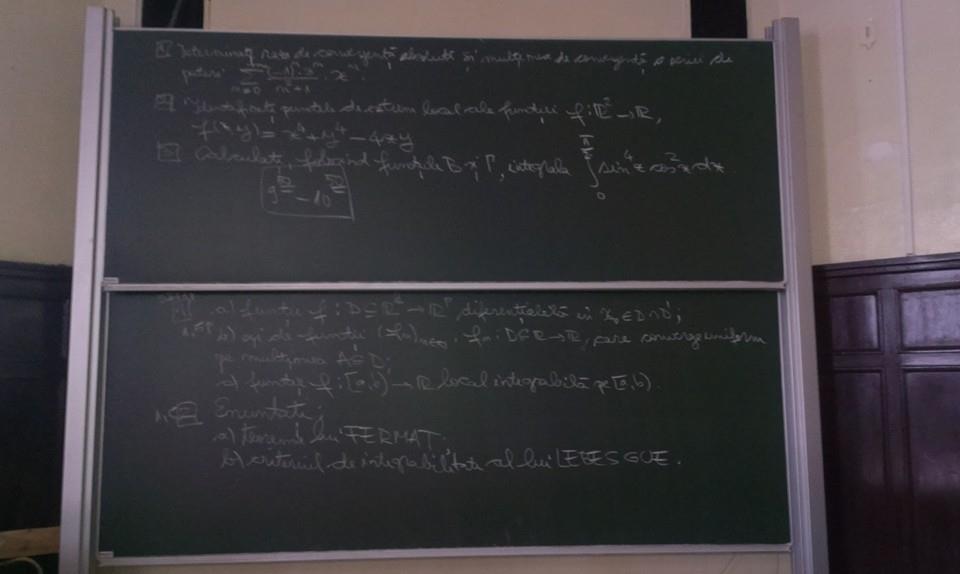 1 Determinați raza de convergență absolută și mulțimea de convergență a seriei de
puteri: ∑ n≥0 (-1)^n · 2^n / n+1 · x^n.
2 Identificați punctele de extrem local ale funcției f: ℝ² → ℝ,
f(x,y) = x⁴ + y⁴ - 4xy
3 Calculați, folosind funcțiile B și Γ, integrala ∫₀^{π/2} sin⁴x cos²x dx.
9 - 10
a) funcție f: D ⊆ ℝ → ℝ diferențiabilă în x₀ ∈ D ∩ D';
b) șir de funcții (fn) n∈, fn: D ⊆ ℝ → ℝ, care converge uniform
pe mulțimea A ⊆ D;
c) funcție f: [a,b) → ℝ local integrabilă pe [a,b).
Enunțați:
a) teorema lui FERMAT.
b) criteriul de integrabilitate al lui LEBESGUE.